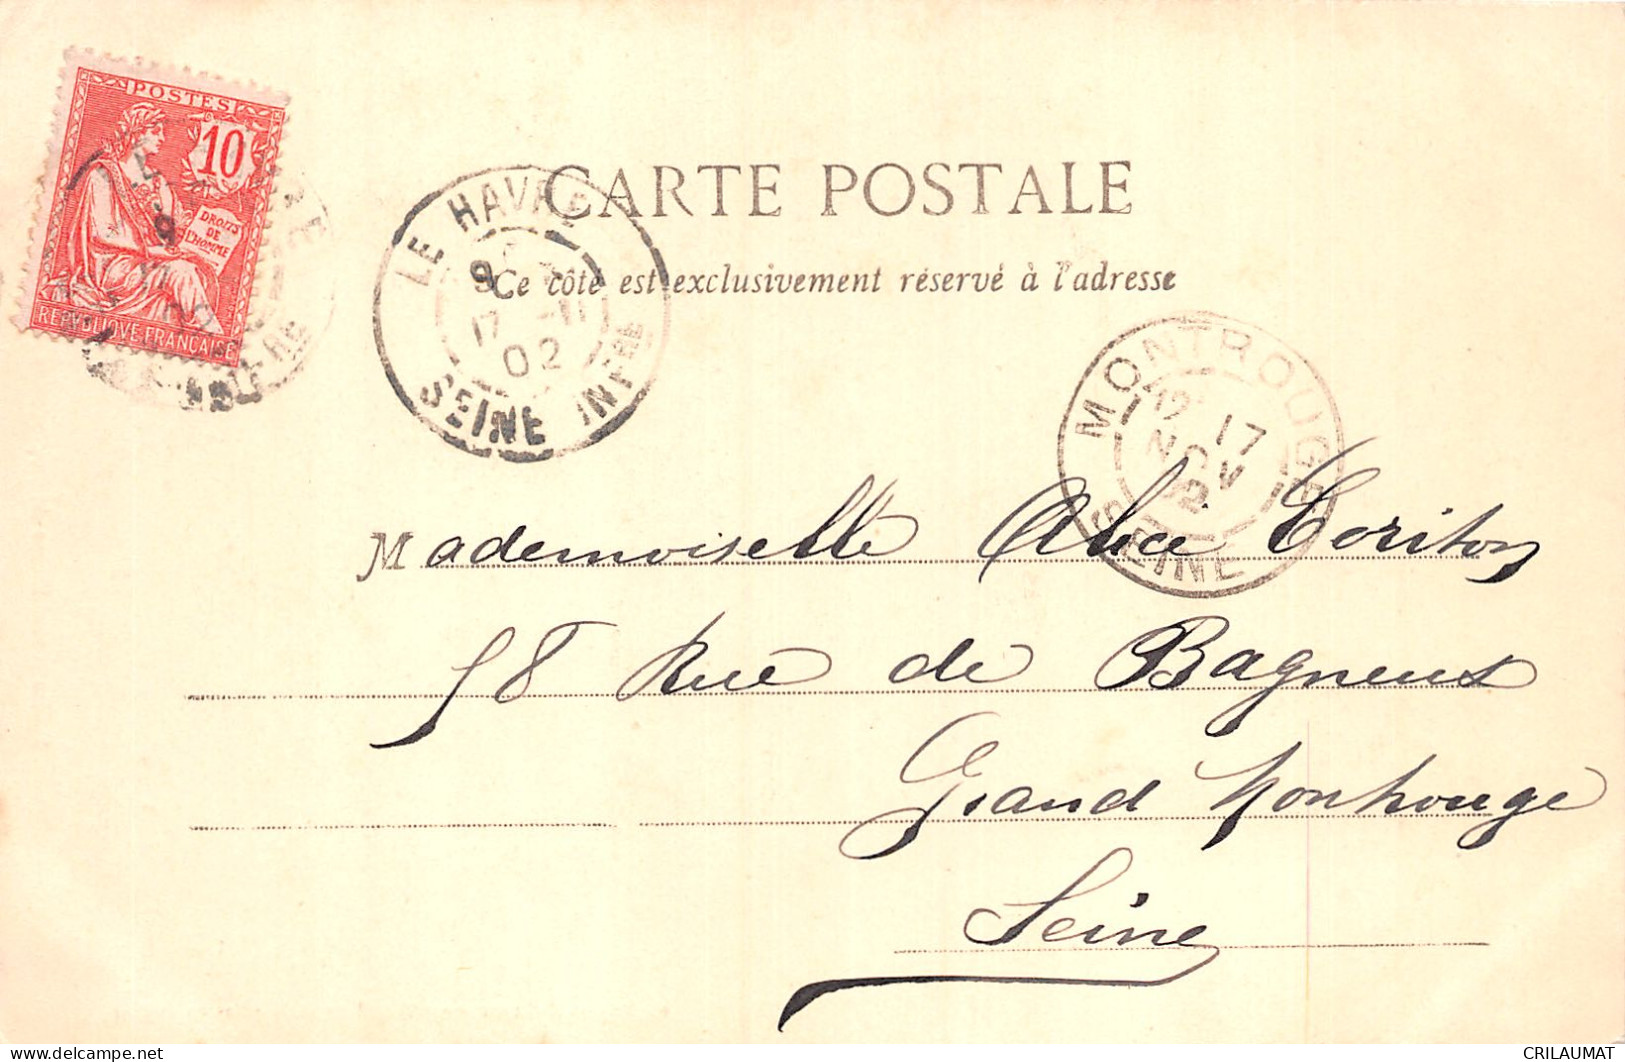 POSTES
10
DROITS
DE
L'HOMME
REPVBLIQVE FRANÇAISE
CARTE POSTALE
Ce côté est exclusivement réservé à l'adresse
LE HAVRE
9
17 -11
02
SEINE INFRE
MONTROUGE
12 17
NOV
02
SEINE
Mademoiselle Alice Coriton
58 Rue de Bagneux
Grand Montrouge
Seine
delcampe.net
CRILAUMAT